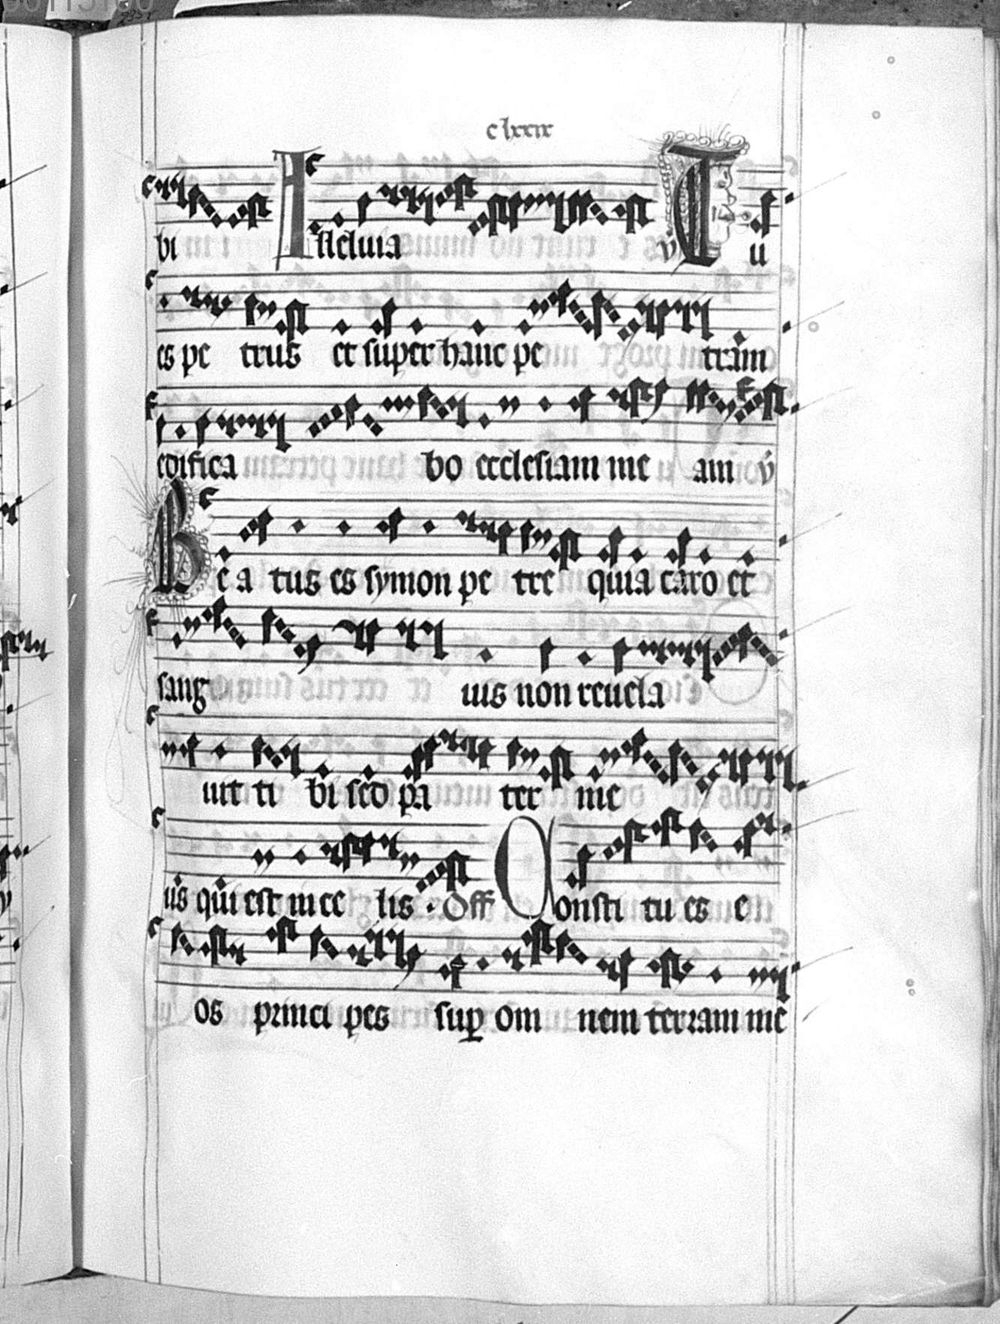 clxxix
bi Alleluia v Tu
es pe trus et super hanc pe tram
edifica bo ecclesiam me am v
Be a tus es symon pe tre quia caro et
sang uis non reuela
uit ti bi sed pa ter me
us qui est in ce lis . Off Consti tu es e
os princi pes sup om nem terram me